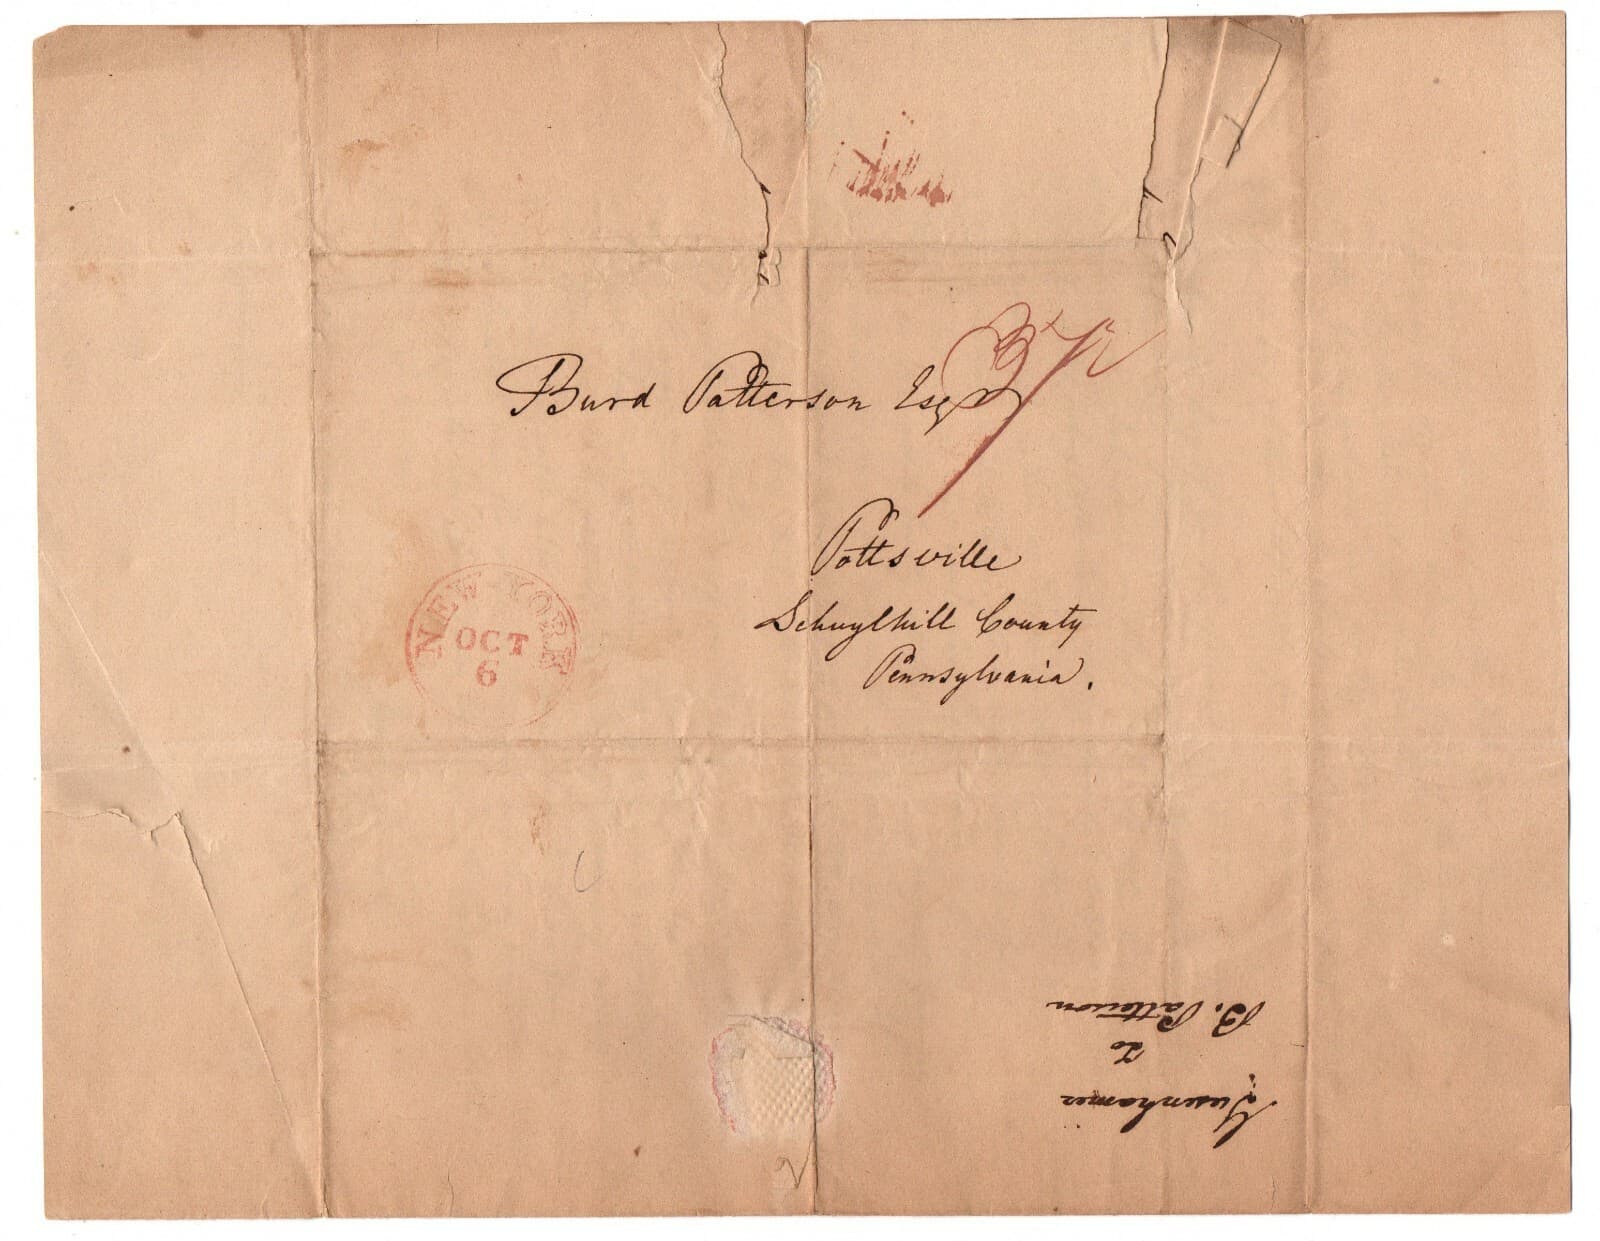 Burd Patterson Esqr
37½
Pottsville
Schuylkill County
Pennsylvania.
NEW-YORK
OCT
6
to
B. Patterson